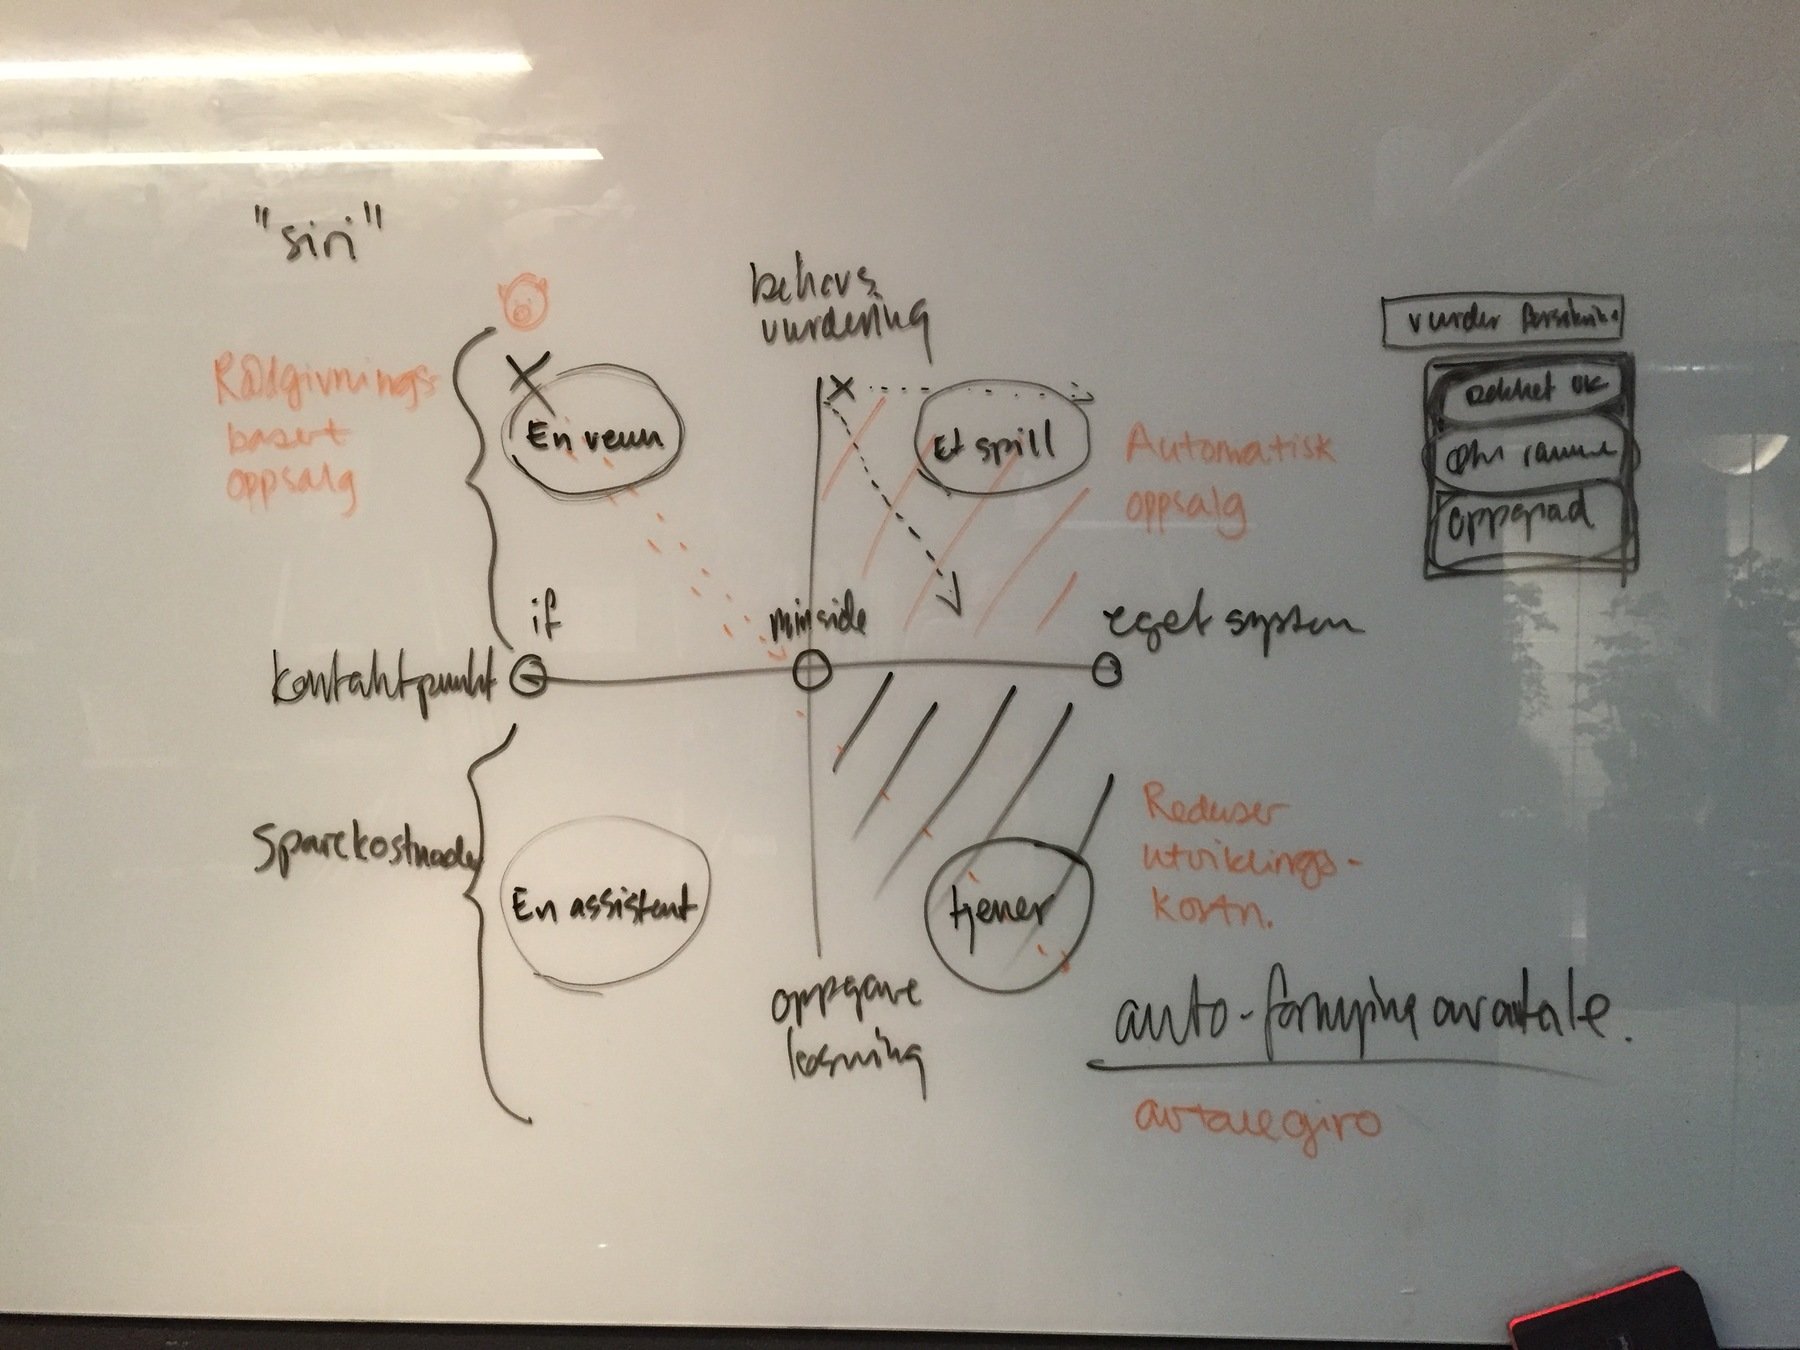 "siri"
behovs
vurdering
Rådgivnings-
basert
oppsalg
En venn
Et spill
Automatisk
oppsalg
vurder forsikring
dekket ok
ramme
oppgrad
if
minside
eget system
kontaktpunkt
Sparekostnader
En assistent
tjener
Reduser
utviklings-
kostn.
oppgave
løsning
auto-fornying avtale.
avtalegiro